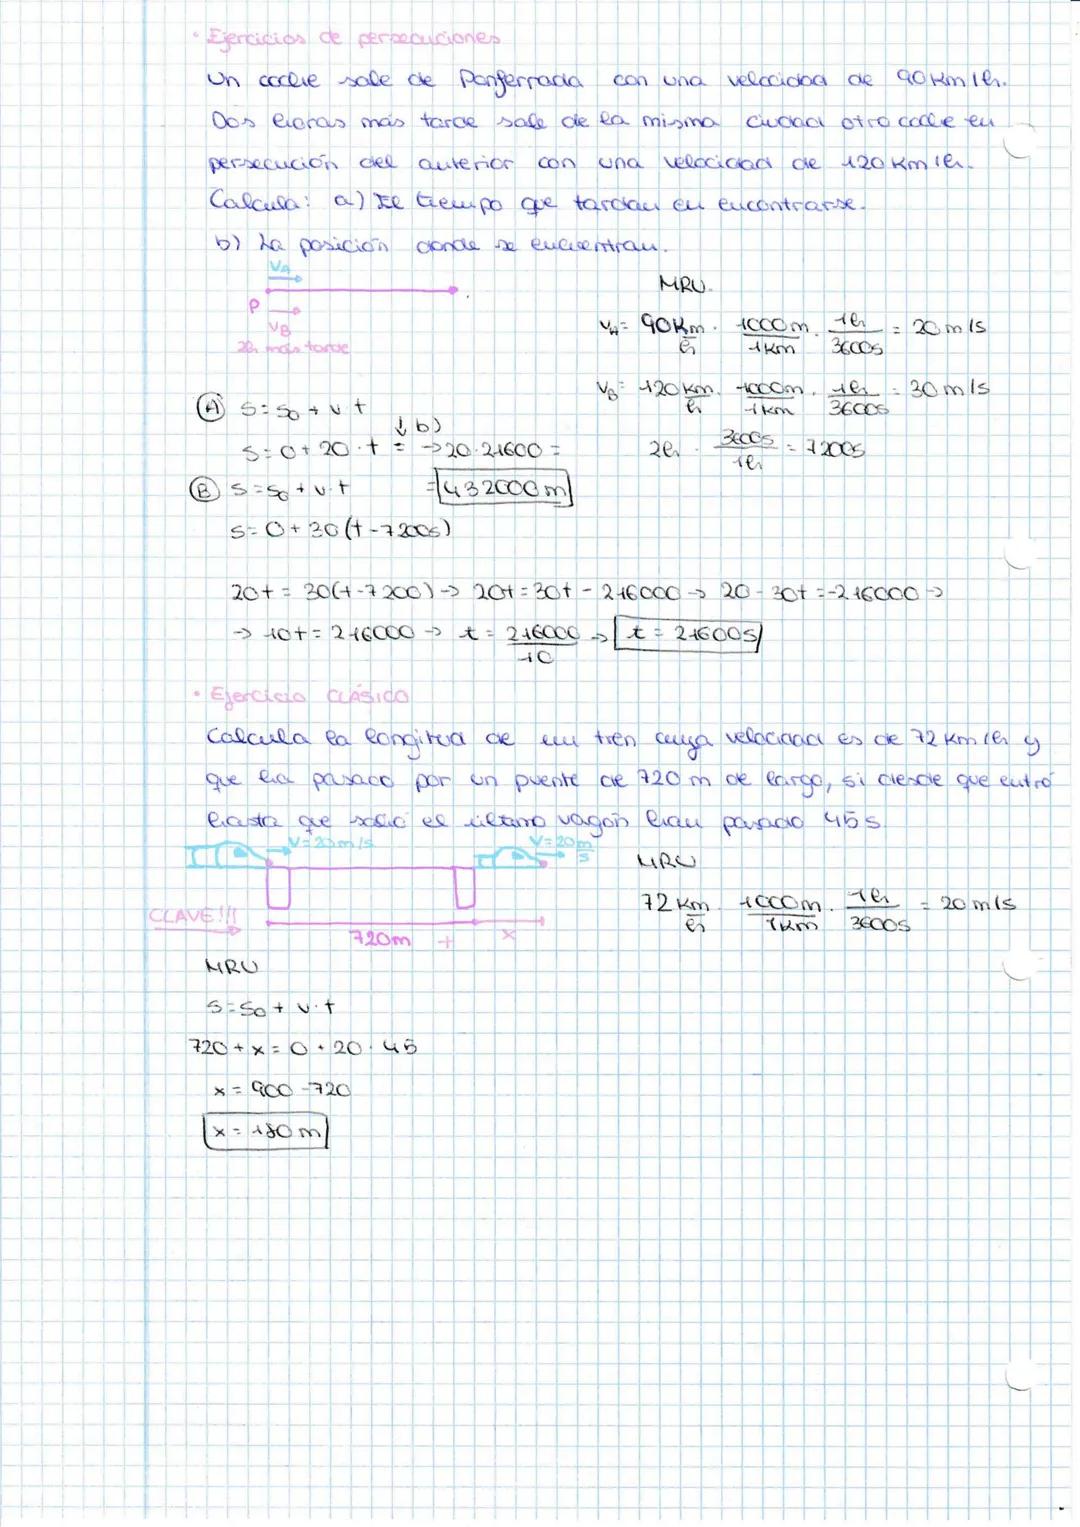 · Ejercicios de persecuciones
Un coche sale de Ponferrada con una velocidad de 90 Km/h.
Dos horas más tarde sale de la misma ciudad otro coche en
persecución del anterior con una velocidad de 120 Km/h.
Calcula: a) El tiempo que tardan en encontrarse.
b) La posición donde se encuentran.
VA
P
VB
2h más tarde
MRU.
VA = 90 Km/h · 1000m/1km · 1h/3600s = 20 m/s
VB = 120 Km/h · 1000m/1km · 1h/3600s = 30 m/s
2h · 3600s/1h = 7200s
A S = S0 + v t
↓ b)
S = 0 + 20 · t = → 20 · 21600 =
= 432000 m
B S = S0 + v · t
S = 0 + 30 (t - 7200s)
20t = 30(t - 7200) → 20t = 30t - 216000 → 20 - 30t = -216000 →
→ 10t = 216000 → t = 216000/10 → t = 21600s
· Ejercicio CLÁSICO
Calcula la longitud de un tren cuya velocidad es de 72 Km/h y
que ha pasado por un puente de 720 m de largo, si desde que entró
hasta que salió el último vagón han pasado 45 s.
V = 20 m/s
V = 20 m/s
CLAVE!!!
720m + x
MRU
72 Km/h · 1000m/1km · 1h/3600s = 20 m/s
MRU
S = S0 + v · t
720 + x = 0 + 20 · 45
x = 900 - 720
x = 180 m